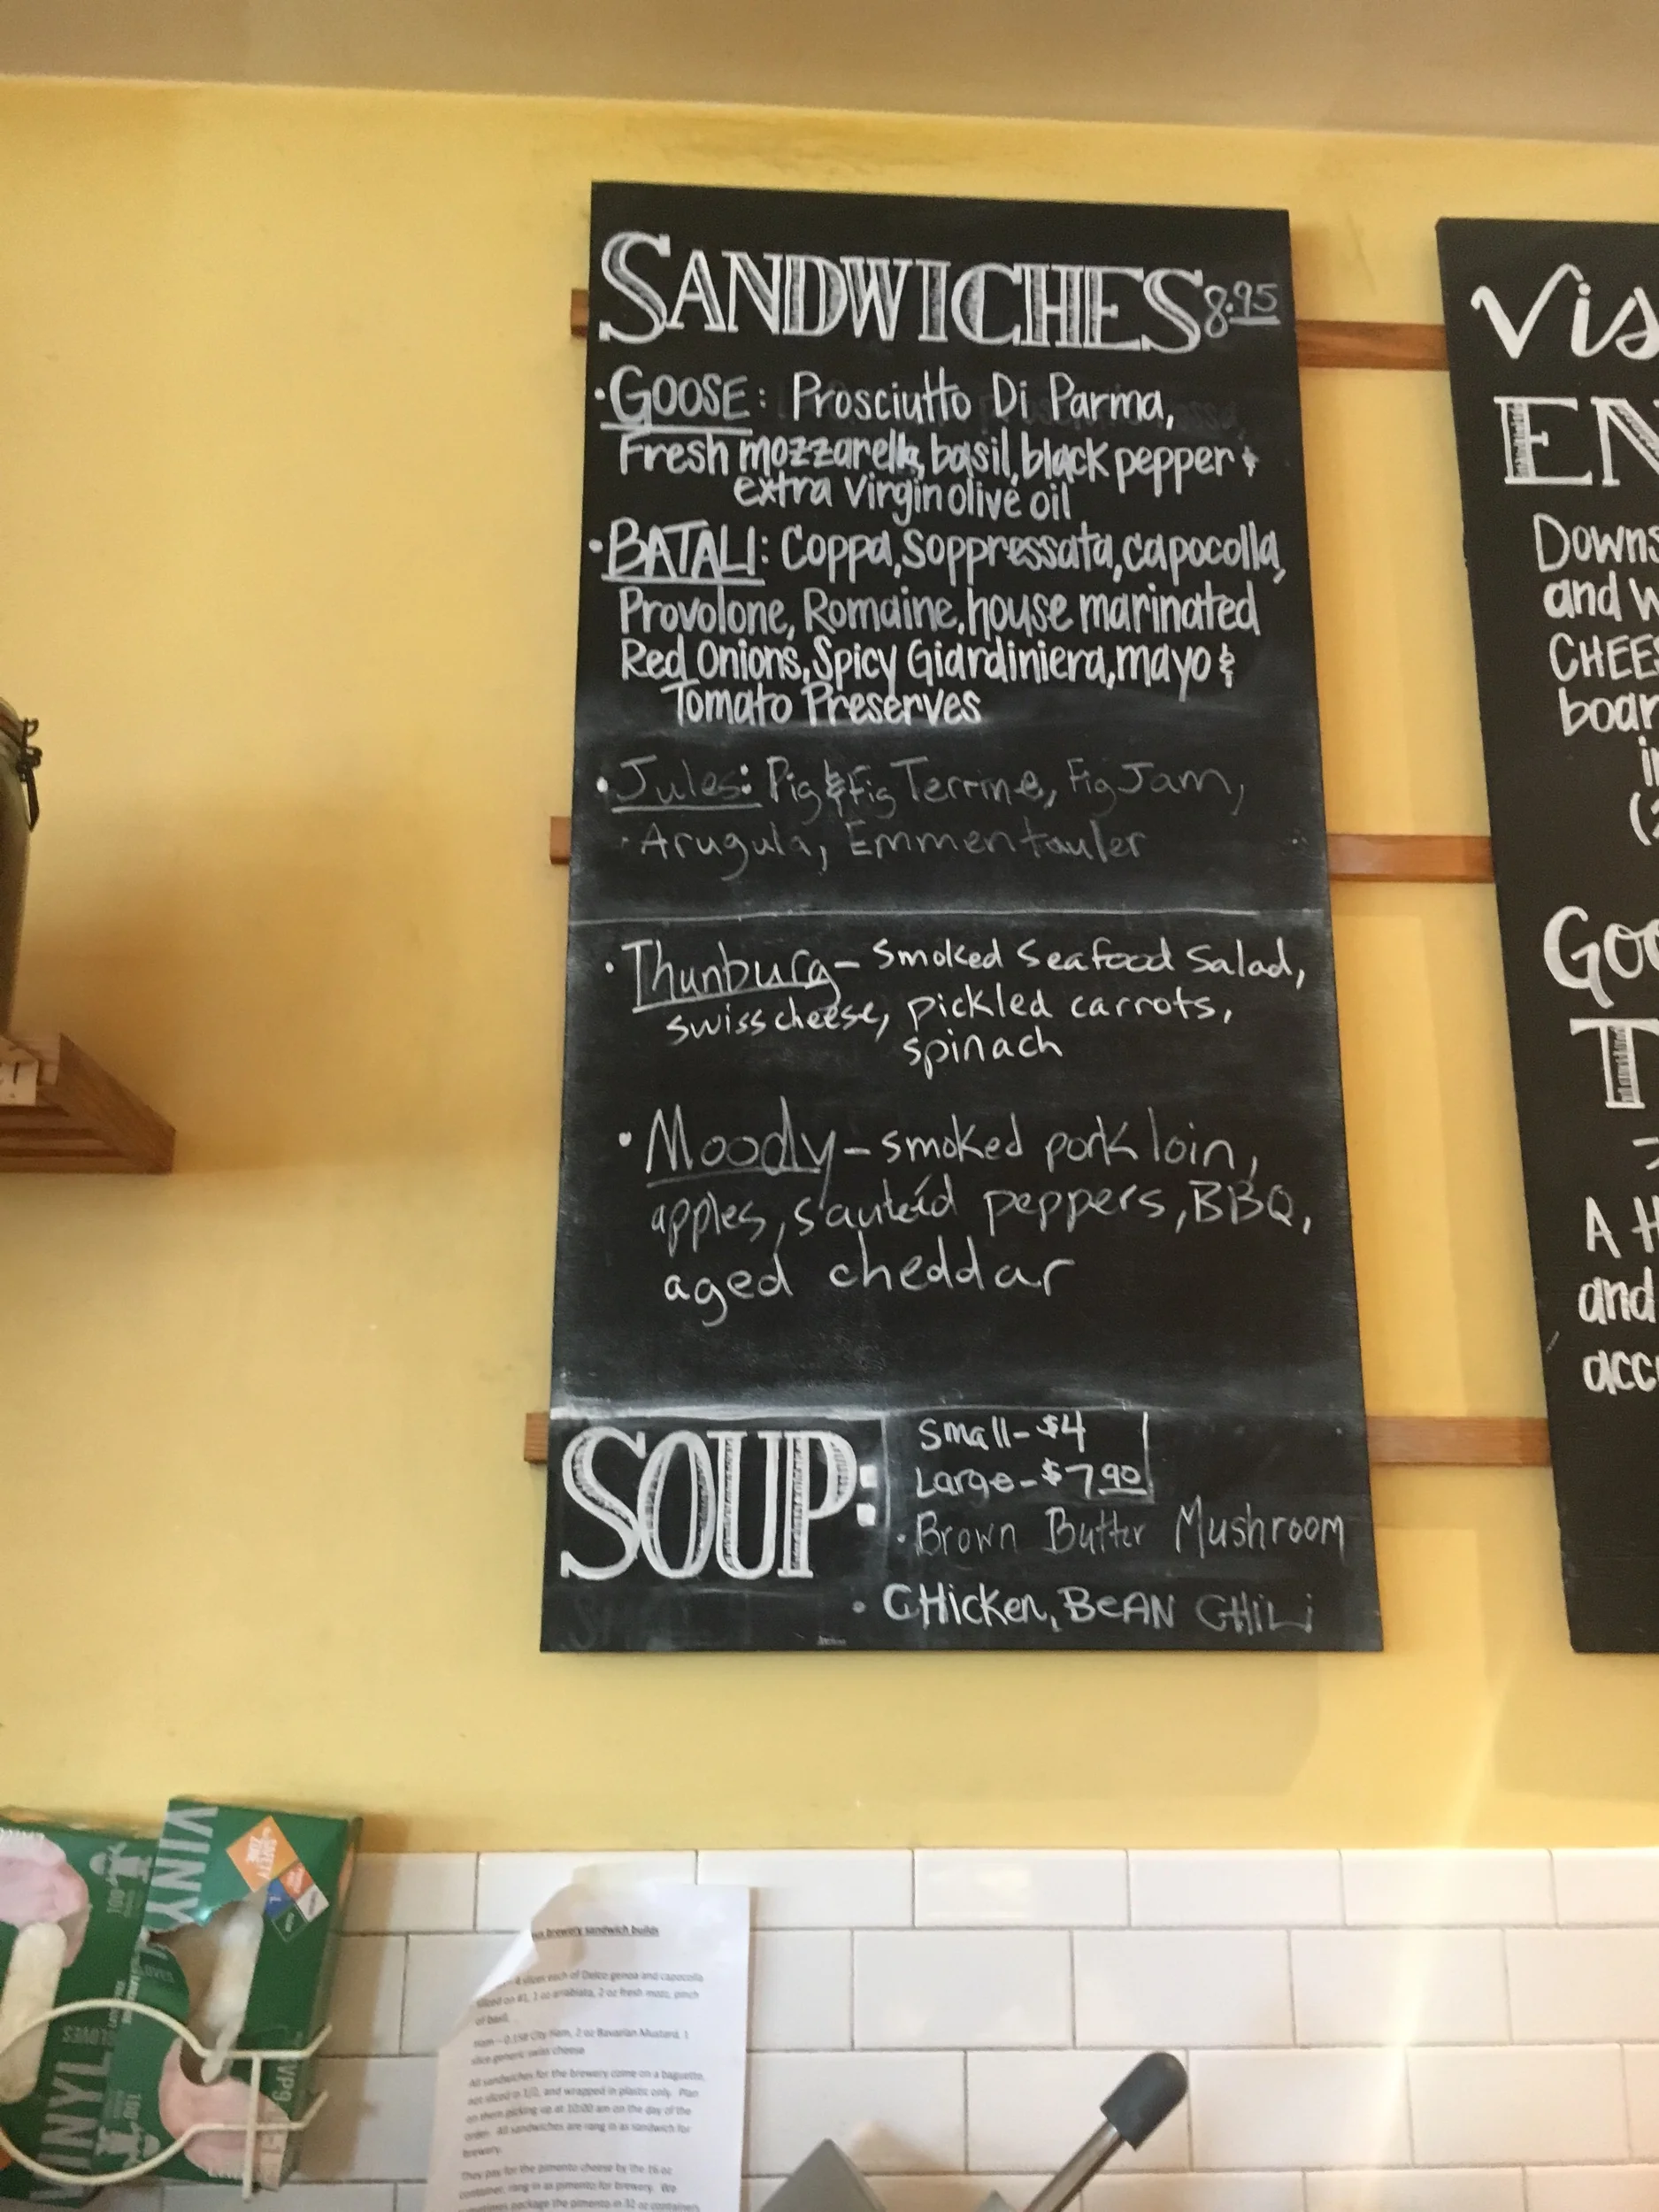 SANDWICHES 8.95
• GOOSE: Prosciutto Di Parma,
Fresh mozzarella, basil, black pepper &
extra virgin olive oil
• BATALI: Coppa, Soppressata, capocolla,
Provolone, Romaine, house marinated
Red Onions, Spicy Giardiniera, mayo &
Tomato Preserves
• Jules: Pig & Fig Terrine, Fig Jam,
Arugula, Emmentauler
• Thunburg - Smoked Seafood Salad,
swiss cheese, pickled carrots,
spinach
• Moody - smoked pork loin,
apples, sautéid peppers, BBQ,
aged cheddar
SOUP:
Small - $4
Large - $7.90
• Brown Butter Mushroom
• CHicken, BeAN CHiLi
Vis
EN
Downs
and w
CHEES
boar
in
(2
Goo
T
A H
and
acc
VINYL
VINY
100
GLOVES
brewery sandwich builds
4 slices each of Delco genoa and capocolla
sliced on #1, 1 oz arrabiata, 2 oz fresh mozz, pinch
of basil.
Ham – 0.15# City Ham, 2 oz Bavarian Mustard, 1
slice generic swiss cheese
All sandwiches for the brewery come on a baguette,
not sliced in 1/2, and wrapped in plastic only. Plan
on them picking up at 10:00 am on the day of the
order. All sandwiches are rang in as sandwich for
brewery.
They pay for the pimento cheese by the 16 oz
container, rang in as pimento for brewery. We
sometimes package the pimento in 32 oz containers